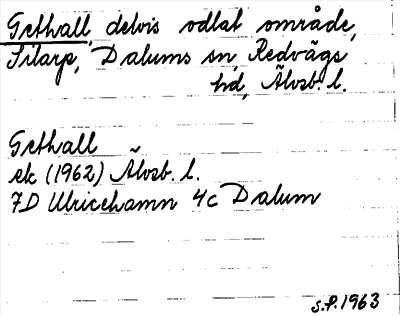 Gethall, delvis odlat område,
Silarp, Dalums sn, Redvägs
hd, Älvsb. l.
Gethall
ek (1962) Älvsb. l.
7D Ulricehamn 4c Dalum
S.P. 1963